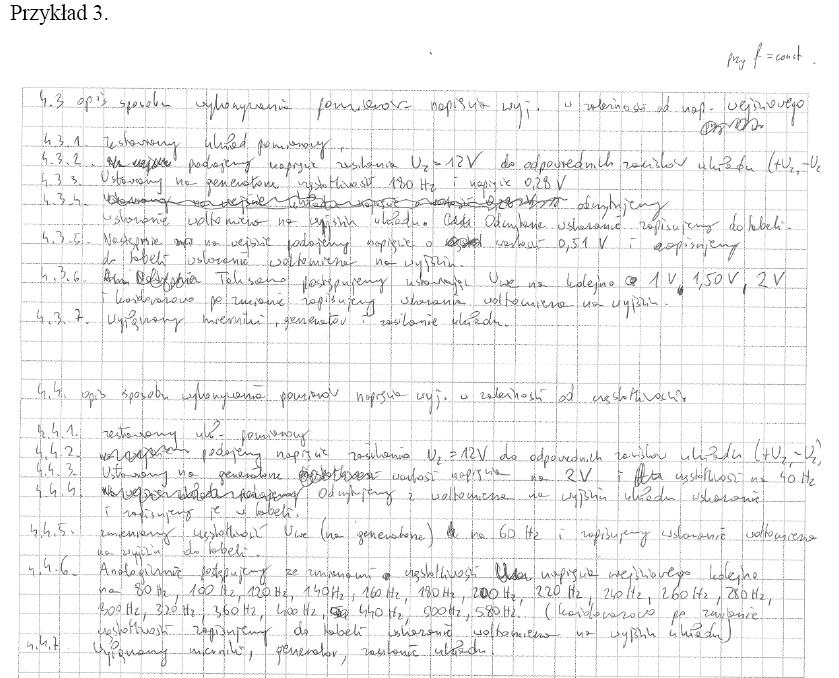 Przykład 3.
przy f = const.
4.3 opis sposobu wykonywania pomiarów napięcia wyj. w zależności od nap. wejściowego
4.3.1. zestawiamy układ pomiarowy.
4.3.2. podajemy napięcie zasilania Uz = 12V do odpowiednich zacisków układu (+Uz, -Uz
4.3.3. Ustawiamy na generatorze częstotliwość 180 Hz i napięcie 0,28 V
4.3.4. odczytujemy
wskazanie woltomierza na wyjściu układu. Odczytane wskazanie zapisujemy do tabeli.
4.3.5. Następnie na wejście podajemy napięcie o wartości 0,51 V i zapisujemy
do tabeli wskazanie woltomierza na wyjściu.
4.3.6. Tak samo postępujemy ustawiając Uwe na kolejno 1V, 1,50V, 2V
i każdorazowo po zmianie zapisujemy wskazania woltomierza na wyjściu.
4.3.7. Wyłączamy mierniki, generator i zasilanie układu.
4.4. opis sposobu wykonywania pomiarów napięcia wyj. w zależności od częstotliwości.
4.4.1. zestawiamy ukł. pomiarowy
4.4.2. podajemy napięcie zasilania Uz = 12V do odpowiednich zacisków układu (+Uz, -Uz)
4.4.3. Ustawiamy na generatorze wartość napięcia na 2V i częstotliwość na 40 Hz
4.4.4. Odczytujemy z woltomierza na wyjściu układu wskazanie
i zapisujemy je w tabeli.
4.4.5. zmieniamy częstotliwość Uwe (na generatorze) na 60 Hz i zapisujemy wskazanie woltomierza
na wyjściu do tabeli.
4.4.6. Analogicznie postępujemy ze zmianami częstotliwości napięcia wejściowego kolejno
na 80 Hz, 100 Hz, 120 Hz, 140 Hz, 160 Hz, 180 Hz, 200 Hz, 220 Hz, 240 Hz, 260 Hz, 280 Hz,
300 Hz, 320 Hz, 360 Hz, 400 Hz, 440 Hz, 500 Hz, 580 Hz. (każdorazowo po zmianie
częstotliwości zapisujemy do tabeli wskazanie woltomierza na wyjściu układu)
4.4.7 Wyłączamy mierniki, generator, zasilanie układu.